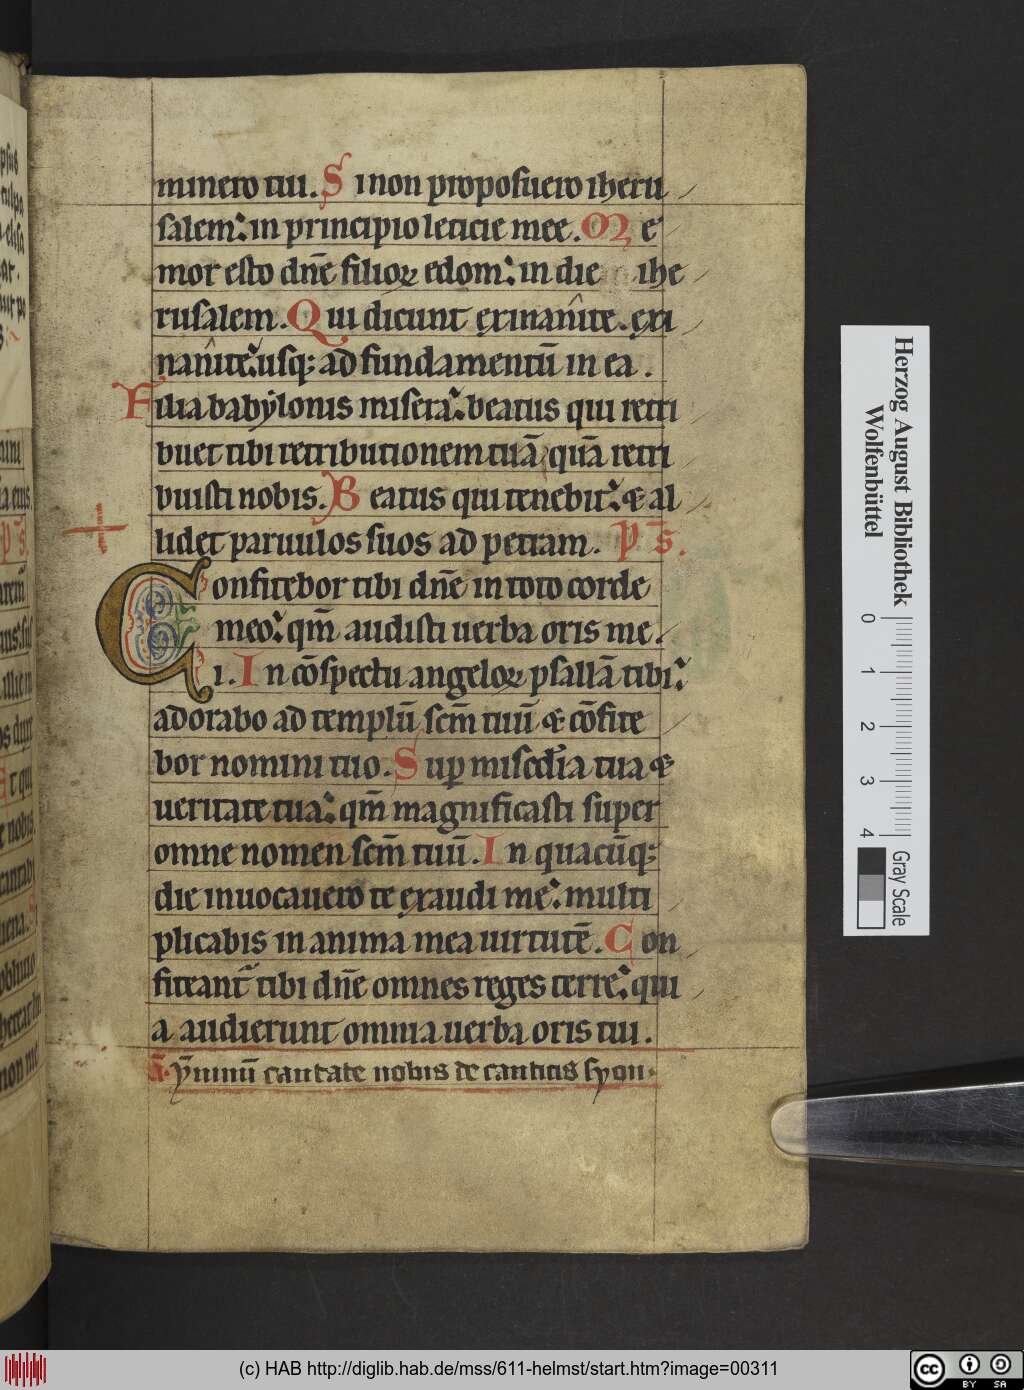 minero tui. Si non proposuero iheru
salem: in principio leticie mee. Me
mor esto dnē filioꝝ edom: in die ihe
rusalem. Qui dicunt exinanite. exi
nanite: usqꝫ ad fundamentū in ea.
Filia babẏlonis misera: beatus qui retri
buet tibi retributionem tuā quā retri
buisti nobis. Beatus qui tenebit: & al
lidet paruulos suos ad petram. p̄s.
Confitebor tibi dnē in toto corde
meo: qm̄ audisti uerba oris me.
i. In cōspectu angeloꝝ psallā tibi:
adorabo ad templū scm̄ tuū & cōfite
bor nomini tuo. Sup miscd̄ia tua &
ueritate tua: qm̄ magnificasti super
omne nomen scm̄ tuū. In quacūqꝫ
die inuocauero te exaudi me: multi
plicabis in anima mea uirtutē. Con
fiteant᷑ tibi dnē omnes reges terre: qui
a audierunt omnia uerba oris tui.
ā. ẏmnū cantate nobis de canticis syon.
Herzog August Bibliothek
Wolfenbüttel
0 1 2 3 4
Gray Scale
(c) HAB http://diglib.hab.de/mss/611-helmst/start.htm?image=00311
cc BY SA